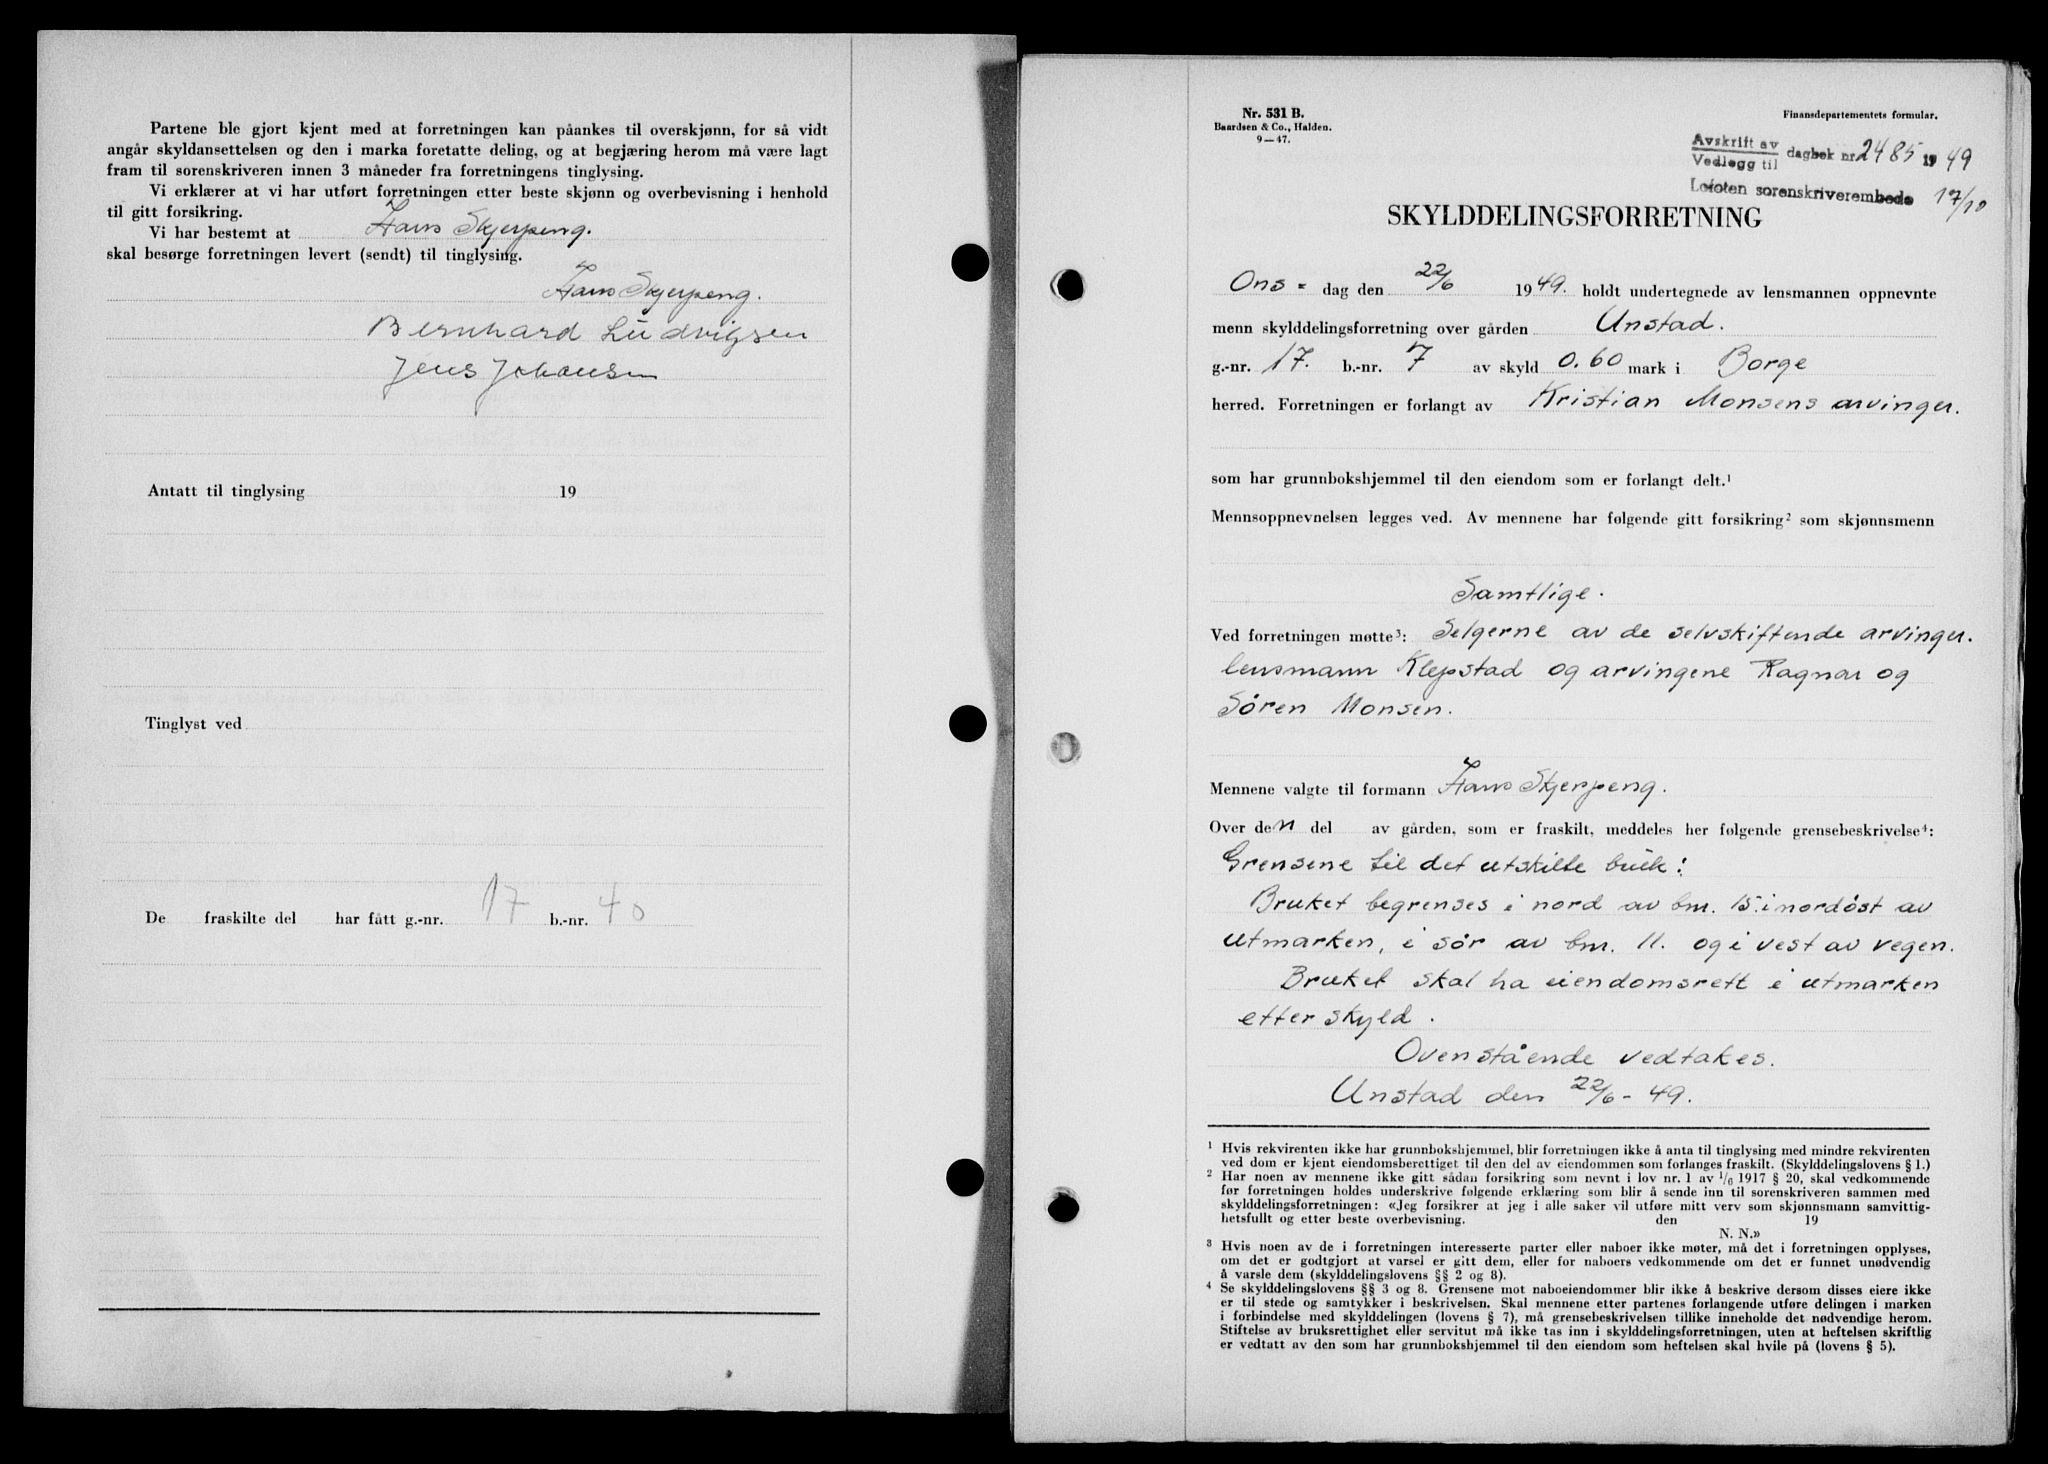 Partene ble gjort kjent med at forretningen kan påankes til overskjønn, for så vidt
angår skyldansettelsen og den i marka foretatte deling, og at begjæring herom må være lagt
fram til sorenskriveren innen 3 måneder fra forretningens tinglysing.
Vi erklærer at vi har utført forretningen etter beste skjønn og overbevisning i henhold
til gitt forsikring.
Vi har bestemt at Hans Skjerpeng.
skal besørge forretningen levert (sendt) til tinglysing.
Hans Skjerpeng.
Bernhard Ludvigsen
Jens Johansen
Antatt til tinglysing 19
Tinglyst ved
De fraskilte del har fått g.-nr. 17 b.-nr. 40
Nr. 531 B.
Baardsen & Co., Halden.
9—47.
Finansdepartementets formular.
Avskrift av
Vedlegg til dagbok nr. 2485 1949
Lofoten sorenskriverembede 17/10
SKYLDDELINGSFORRETNING
Ons- dag den 22/6 1949. holdt undertegnede av lensmannen oppnevnte
menn skylddelingsforretning over gården Unstad.
g.-nr. 17. b.-nr. 7 av skyld 0.60 mark i Borge
herred. Forretningen er forlangt av Kristian Monsens arvinger.
som har grunnbokshjemmel til den eiendom som er forlangt delt.¹
Mennsoppnevnelsen legges ved. Av mennene har følgende gitt forsikring² som skjønnsmenn
Samtlige.
Ved forretningen møtte³: Selgerne av de selvskiftende arvinger.
lensmann Klepstad og arvingene Ragnar og
Sören Monsen.
Mennene valgte til formann Hans Skjerpeng.
Over den del av gården, som er fraskilt, meddeles her følgende grensebeskrivelse⁴:
Grensene til det utskilte bruk:
Bruket begrenses i nord av bm. 15. i nordöst av
utmarken, i sör av bm. 11. og i vest av vegen.
Bruket skal ha eiendomsrett i utmarken
etter skyld.
Ovenstående vedtakes.
Unstad den 22/6 - 49.
¹ Hvis rekvirenten ikke har grunnbokshjemmel, blir forretningen ikke å anta til tinglysing med mindre rekvirenten
ved dom er kjent eiendomsberettiget til den del av eiendommen som forlanges fraskilt. (Skylddelingslovens § 1.)
² Har noen av mennene ikke gitt sådan forsikring som nevnt i lov nr. 1 av 1/6 1917 § 20, skal vedkommende
før forretningen holdes underskrive følgende erklæring som blir å sende inn til sorenskriveren sammen med
skylddelingsforretningen: «Jeg forsikrer at jeg i alle saker vil utføre mitt verv som skjønnsmann samvittig-
hetsfullt og etter beste overbevisning. den 19
N. N.»
³ Hvis noen av de i forretningen interesserte parter eller naboer ikke møter, må det i forretningen opplyses,
om det er godtgjort at varsel er gitt dem, eller for naboers vedkommende om det er funnet unødvendig
å varsle dem (skylddelingslovens §§ 2 og 8).
⁴ Se skylddelingslovens §§ 3 og 8. Grensene mot naboeiendommer blir ikke å beskrive dersom disses eiere ikke
er til stede og samtykker i beskrivelsen. Skal mennene etter partenes forlangende utføre delingen i marken
i forbindelse med skylddelingen (lovens § 7), må grensebeskrivelsen tillike inneholde det nødvendige herom.
Stiftelse av bruksrettighet eller servitut må ikke tas inn i skylddelingsforretningen, uten at heftelsen skriftlig
er vedtatt av den som har grunnbokshjemmel til den eiendom som heftelsen skal hvile på (lovens § 5).